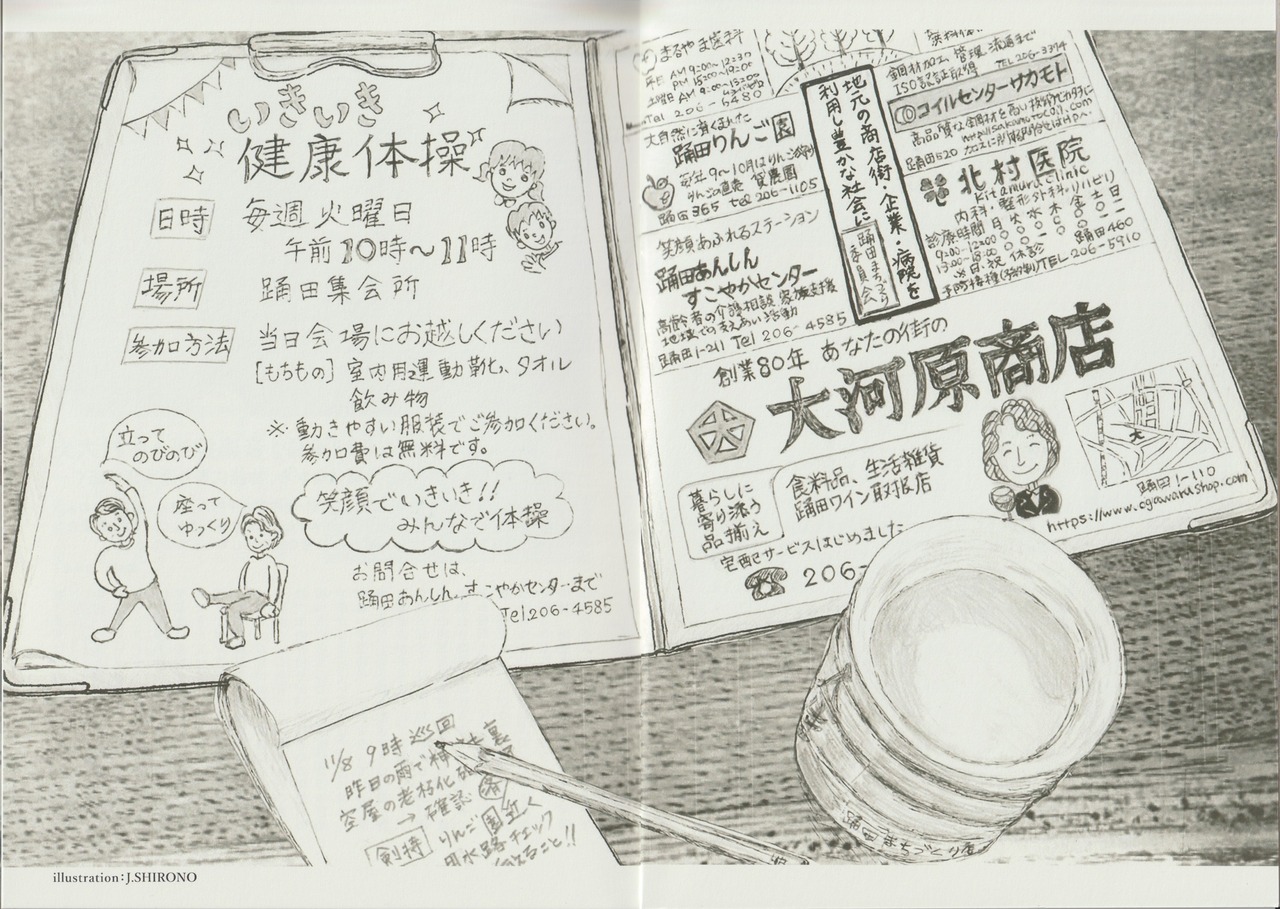 いきいき
健康体操
日時 毎週火曜日
午前10時〜11時
場所 踊田集会所
参加方法 当日会場にお越しください
[もちもの] 室内用運動靴、タオル
飲み物
※動きやすい服装でご参加ください。
参加費は無料です。
立って
のびのび
座って
ゆっくり
笑顔でいきいき!!
みんなで体操
お問合せは、
踊田あんしんすこやかセンターまで
Tel.206-4585
まるやま歯科
平日 AM 9:00〜12:30
PM 15:00〜19:00
土曜日 AM 9:00〜13:00
Tel 206-6480
大自然に育くまれた
踊田りんご園
毎年9〜10月はりんご狩り
りんごの直売 貸農園
踊田365 tel 206-1105
笑顔あふれるステーション
踊田あんしん
すこやかセンター
高齢者の介護相談 家族支援
地域での支えあい活動
踊田1-211 Tel 206-4585
地元の商店街・企業・病院を
利用し豊かな社会に
踊田まちづくり
委員会
鋼材加工、管理、流通まで
ISO認証取得 TEL 206-3374
コイルセンターサカモト
高品質な鋼材を高い技術でカタチに
踊田520
北村医院
Kitamura clinic
内科・整形外科・リハビリ
診療時間 日 火 水 木 金 土
9:00-12:00
※日・祝 休診 踊田460
TEL 206-5910
創業80年 あなたの街の
大河原商店
暮らしに
寄り添う
品揃え
食料品、生活雑貨
踊田ワイン取扱店
大
踊田1-110
https://www.ogawarashop.com
宅配サービスはじめました
206-
11/8 9時 巡回
昨日の雨で神社裏
空屋の老朽化
→確認
剣持 りんご園近く
用水路チェック
えること!!
踊田まちづくり委
illustration:J.SHIRONO